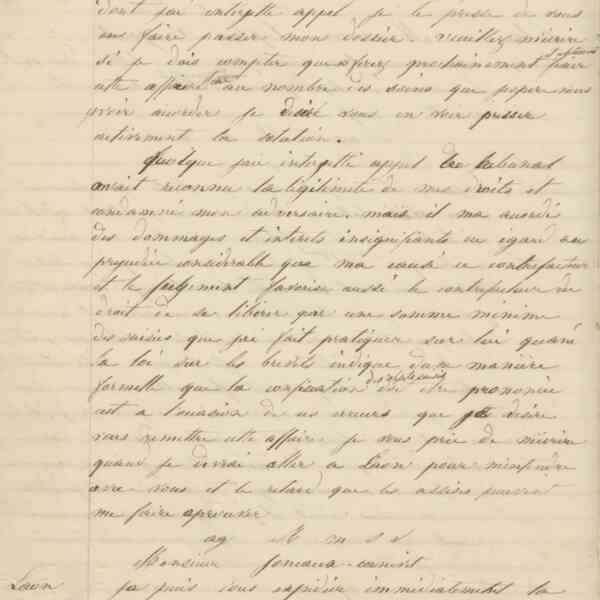 dont j'ai interjetté appel je le presse de vous
en faire passer mon dossier. veuillez m'écrire
si je dois compter que prochainement
cette affaire au nombre des soins que j'espere vous
avoir accorder je désire vous en voir presser
activement la solution.
Quoique j'ai interjetté appel le tribunal
avait reconnu la légitimité de mes droits et
condamné mon adversaire. mais il m'a accordé
des dommages et interets insignifiants eu égard au
prejudice considerable que m'a causé ce contrefacteur
et le jugement favorise aussi le contrefacteur en
droit de se libérer par une somme minime
des saisies que j'ai fait pratiquer sur lui quand
la loi sur les brevets indique d'une maniere
formelle que la confiscation doit etre prononcée
c'est a l'occasion de ces erreurs que je désire
vous remettre cette affaire je vous prie de m'écrire
quand je devrai aller a Laon pour m'entendre
avec vous et le retard que les assises peuvent
me faire éprouver
Monsieur
Laon je puis vous expédier immédiatement la